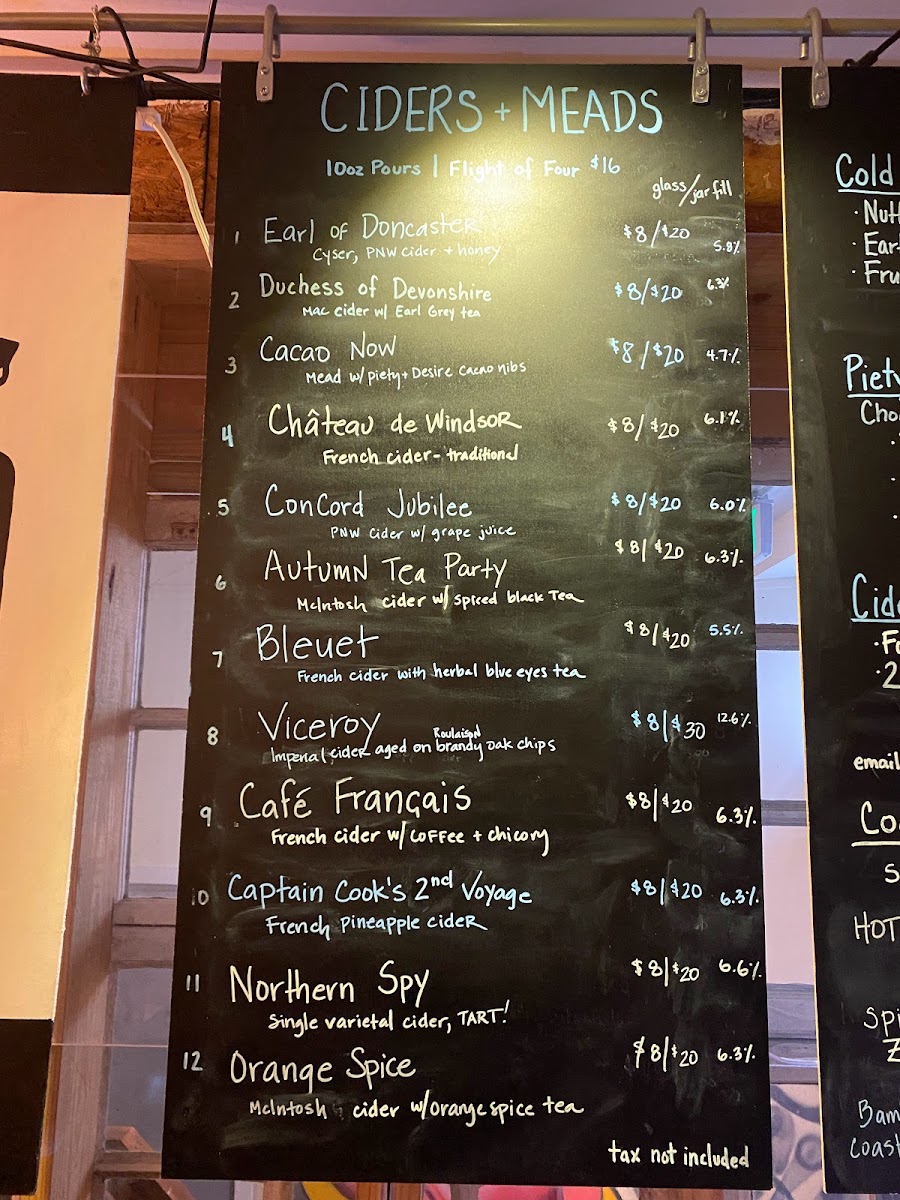 CIDERS + MEADS
10oz Pours | Flight of Four $16
glass/jar fill
1 Earl of Doncaster $8/$20 5.8%
Cyser, PNW cider + honey
2 Duchess of Devonshire $8/$20 6.3%
Mac cider w/ Earl Grey tea
3 Cacao Now $8/$20 4.7%
Mead w/ piety + Desire cacao nibs
4 Château de Windsor $8/$20 6.1%
French cider - traditional
5 Concord Jubilee $8/$20 6.0%
PNW cider w/ grape juice
6 Autumn Tea Party $8/$20 6.3%
McIntosh cider w/ spiced black Tea
7 Bleuet $8/$20 5.5%
French cider with herbal blue eyes tea
8 Viceroy $8/$30 12.6%
Roulaison
Imperial cider aged on brandy oak chips
9 Café Français $8/$20 6.3%
French cider w/ coffee + chicory
10 Captain Cook's 2nd Voyage $8/$20 6.3%
French Pineapple cider
11 Northern Spy $8/$20 6.6%
Single varietal cider, TART!
12 Orange Spice $8/$20 6.3%
McIntosh cider w/orange spice tea
tax not included
Cold
email
HOT